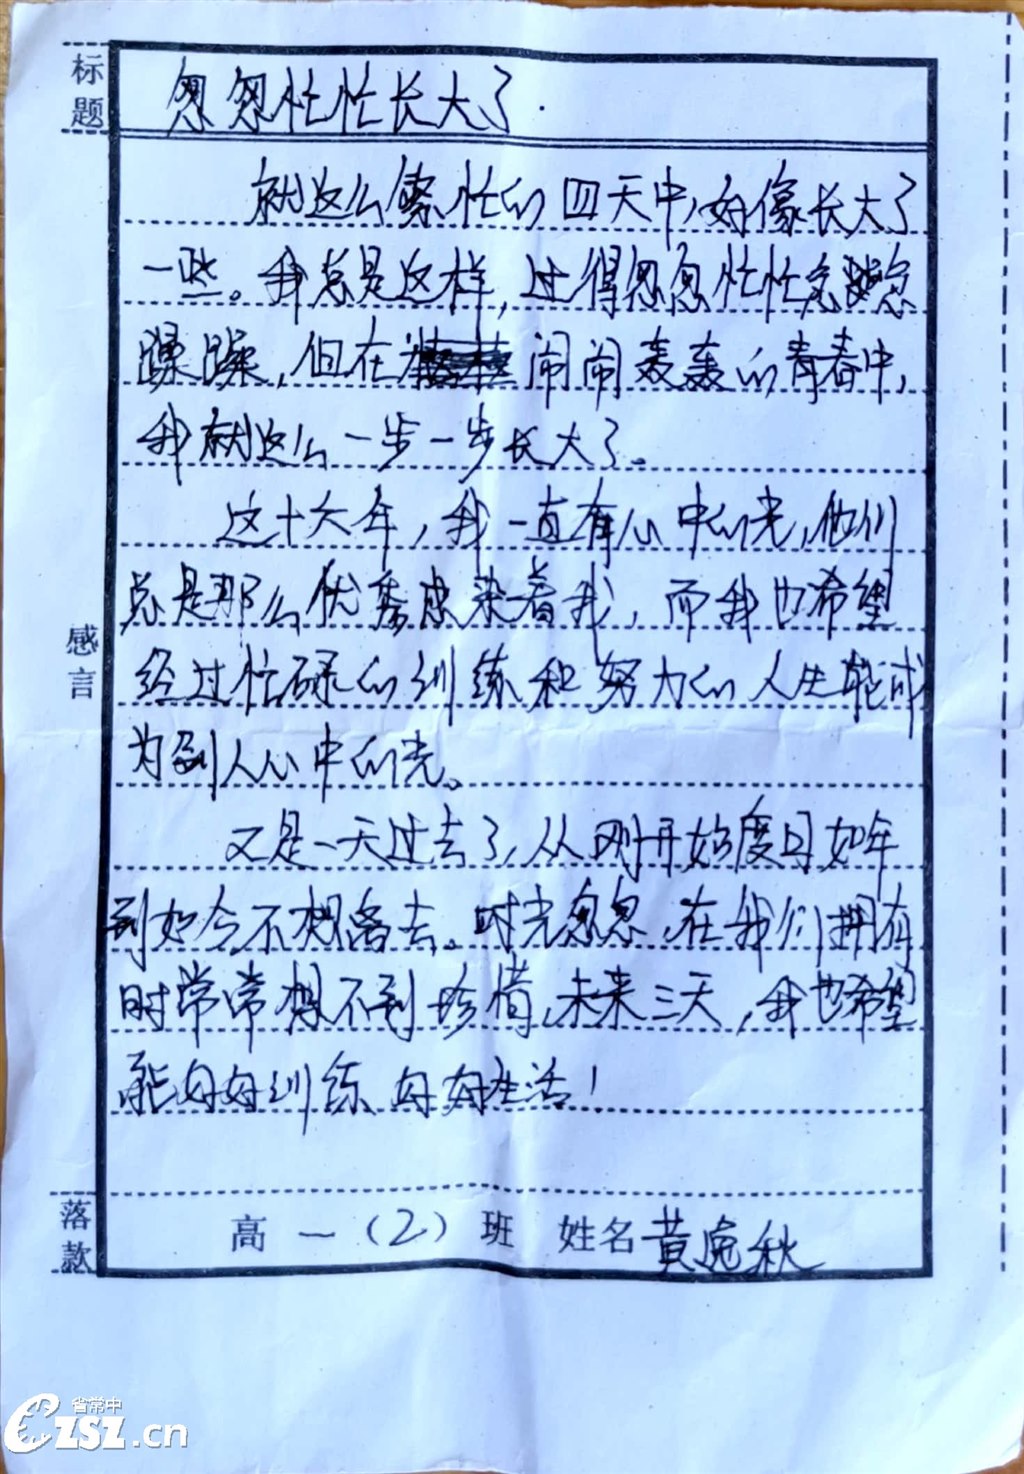 标题
匆匆忙忙长大了.
就这么繁忙的四天中,好像长大了
一些。我总是这样,过得匆匆忙忙急急
躁躁,但在闹闹轰轰的青春中,
我就这么一步一步长大了。
这十六年,我一直有心中的光,他们
总是那么优秀感染着我,而我也希望
感言
经过忙碌的训练和努力的人生能成
为别人心中的光。
又是一天过去了,从刚开始度日如年
到如今不想离去。时光匆匆,在我们拥有
时常常想不到珍惜,未来三天,我也希望
能好好训练,好好生活!
落款
高一(2)班 姓名黄 秋
省常中
CZSZ.cn